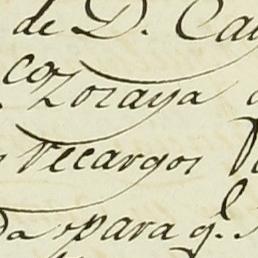 de D. Ca
co Zoraya
recargos
para q.